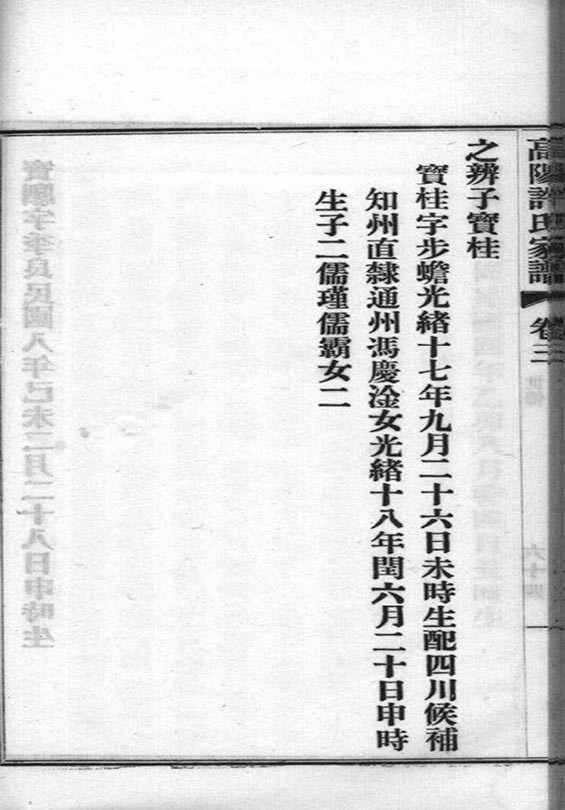 高陽許氏家譜 卷三
之辨子寶桂
寶桂字步蟾光緒十七年九月二十六日未時生配四川候補
知州直隸通州馮慶淦女光緒十八年閏六月二十日申時
生子二儒瑾儒霸女二